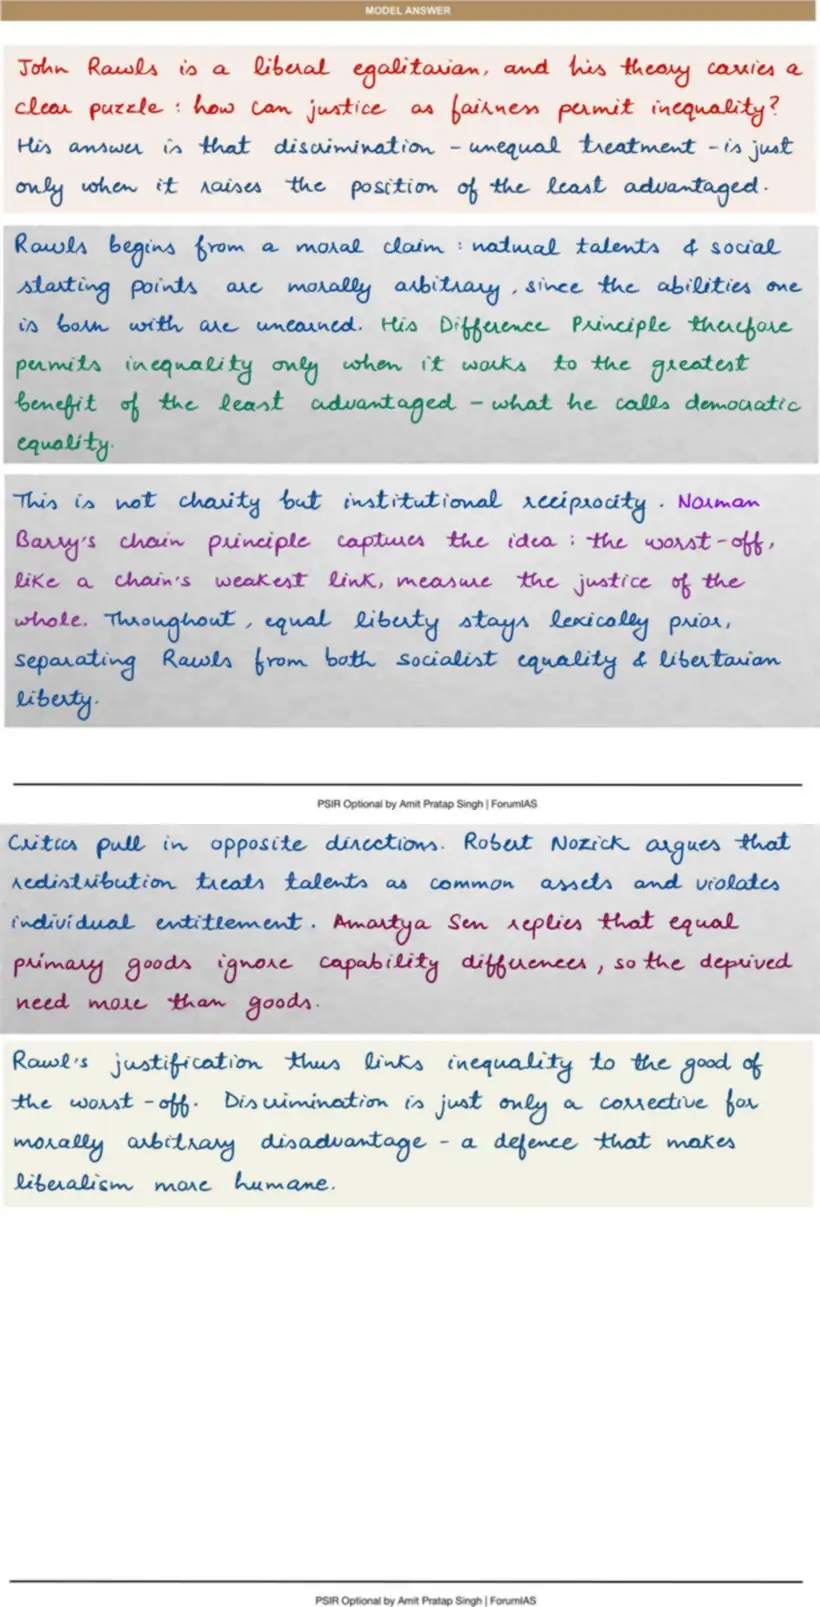 MODEL ANSWER
John Rawls is a liberal egalitarian, and his theory carries a
clear puzzle : how can justice as fairness permit inequality?
His answer is that discrimination - unequal treatment - is just
only when it raises the position of the least advantaged.
Rawls begins from a moral claim : natural talents & social
starting points are morally arbitrary, since the abilities one
is born with are unearned. His Difference Principle therefore
permits inequality only when it works to the greatest
benefit of the least advantaged - what he calls democratic
equality.
This is not charity but institutional reciprocity. Norman
Barry's chain principle captures the idea : the worst-off,
like a chain's weakest link, measure the justice of the
whole. Throughout, equal liberty stays lexically prior,
separating Rawls from both socialist equality & libertarian
liberty.
PSIR Optional by Amit Pratap Singh | ForumIAS
Critics pull in opposite directions. Robert Nozick argues that
redistribution treats talents as common assets and violates
individual entitlement. Amartya Sen replies that equal
primary goods ignore capability differences, so the deprived
need more than goods.
Rawl's justification thus links inequality to the good of
the worst-off. Discrimination is just only a corrective for
morally arbitrary disadvantage - a defence that makes
liberalism more humane.
PSIR Optional by Amit Pratap Singh | ForumIAS